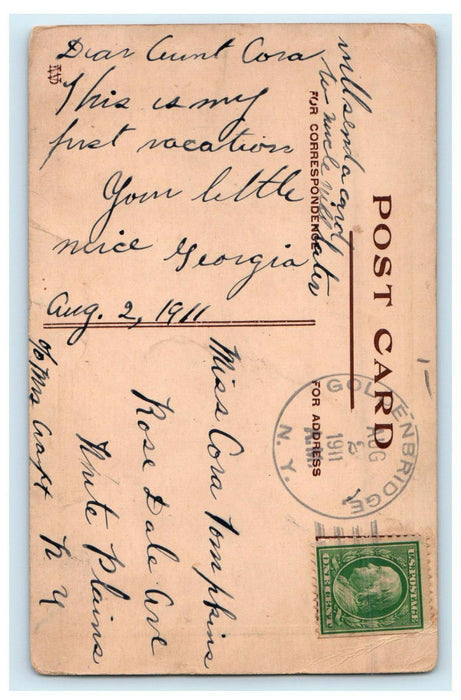 Dear Aunt Cora
This is my
first vacation
Your little
niece Georgia
Aug. 2, 1911
will send a card
to uncle Will later
POST CARD
FOR CORRESPONDENCE
FOR ADDRESS
Miss Cora Tompkins
Rose Dale Ave
White Plains
N Y
c/o Mrs Craft
GOLDENBRIDGE
AUG
2
1911
N. Y.
U.S. POSTAGE
ONE CENT